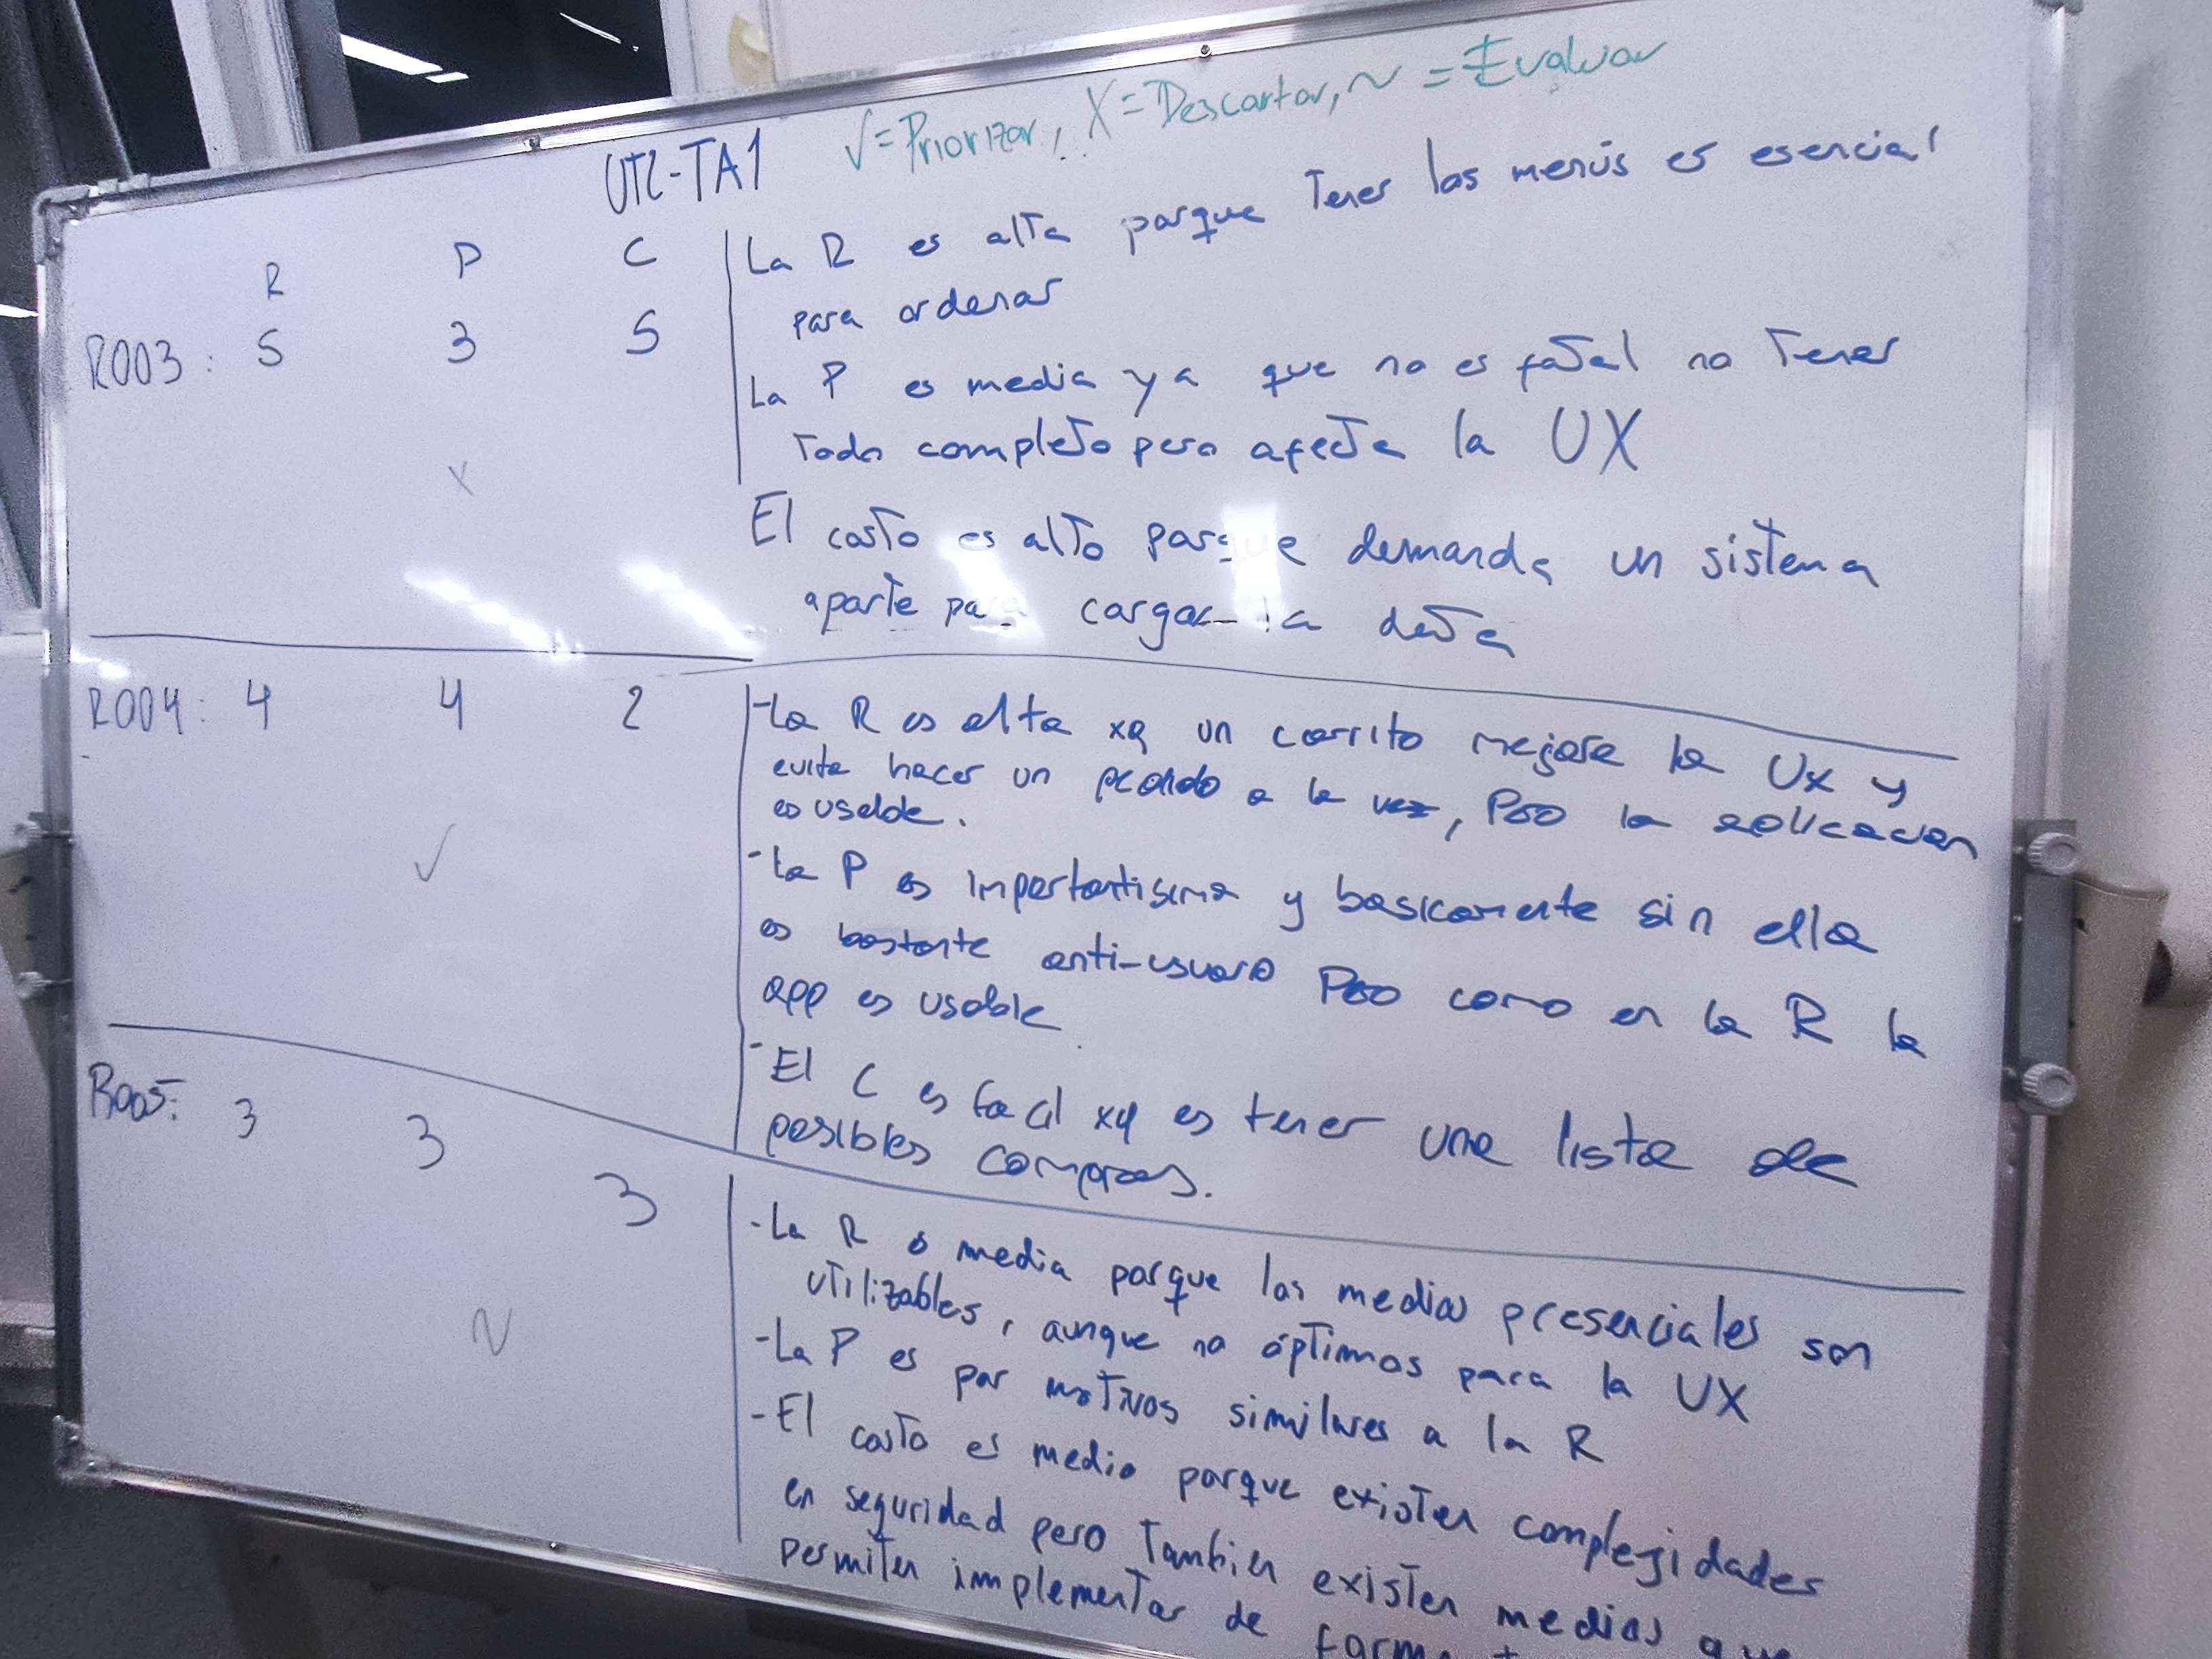 √=Priorizar, X=Descartar, ~ = Evaluar
UT2-TA1
R P C
R003: 5 3 5
X
La R es alta porque Tener los menús es esencial
para ordenar
La P es media ya que no es fatal no Tener
Todo completo pero afecta la UX
El costo es alto porque demanda un sistema
aparte para cargar la data
R004: 4 4 2
√
-La R es alta xq un carrito mejora la UX y
evita hacer un pedido a la vez, Pero la aplicacion
es usable.
-La P es importantisima y basicamente sin ella
es bastante anti-usuario Pero como en la R la
app es usable
-El C es facil xq es tener una lista de
posibles compras.
R005: 3 3 3
~
-La R es media porque los medios presenciales son
utilizables, aunque no óptimos para la UX
-La P es por motivos similares a la R
-El costo es medio porque existen complejidades
en seguridad pero Tambien existen medios que
permiten implementar de forma